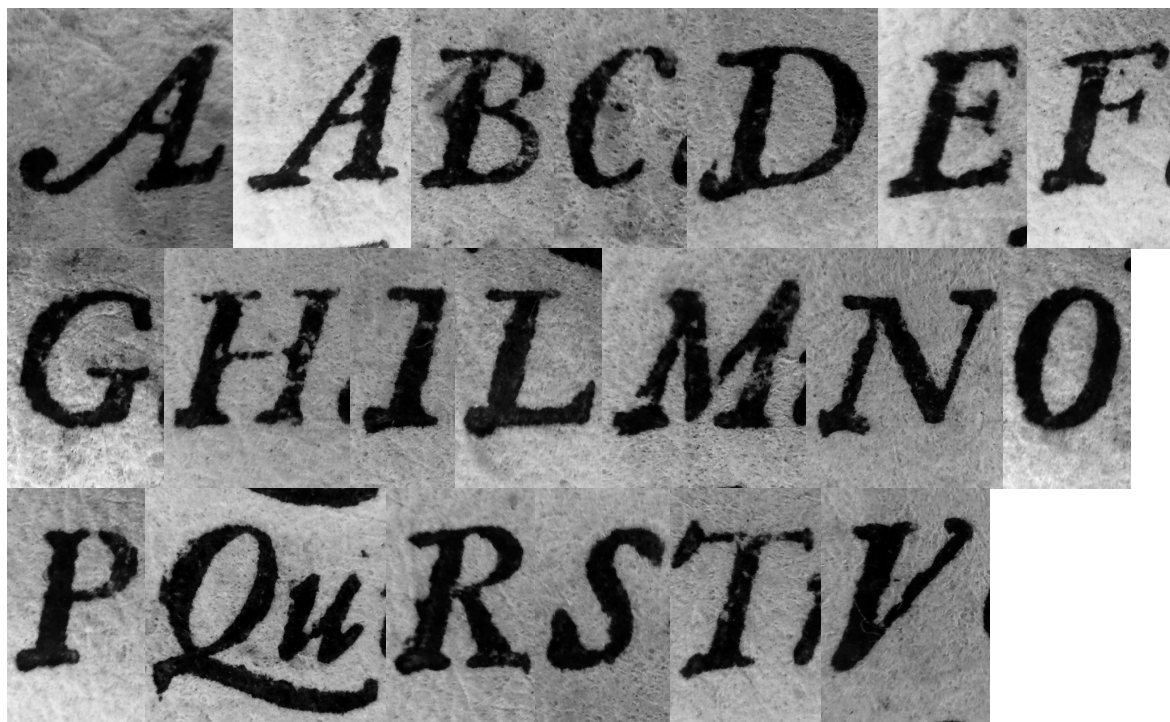 A A B C D E F
G H I L M N O
P Qu R S T V